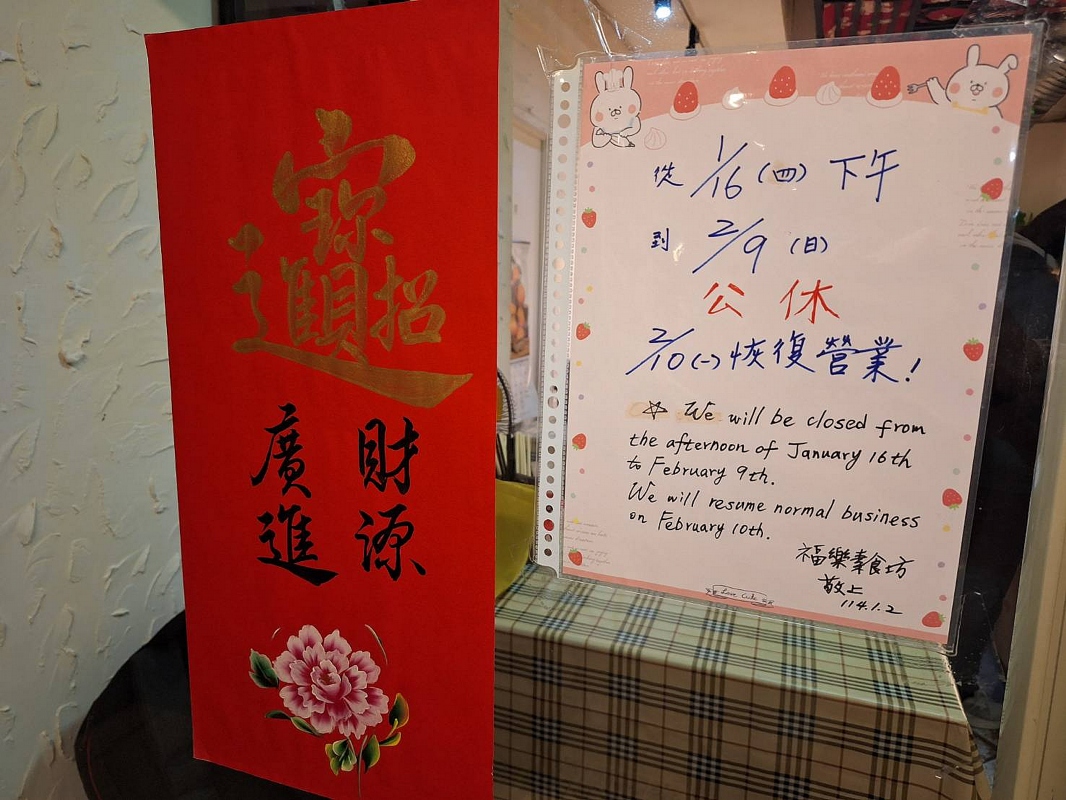 招財進寶
財源
廣進
從 1/16 (四) 下午
到 2/9 (日)
公休
2/10 (一) 恢復營業!
☆ We will be closed from
the afternoon of January 16th
to February 9th.
We will resume normal business
on February 10th.
福樂素食坊
敬上
114.1.2